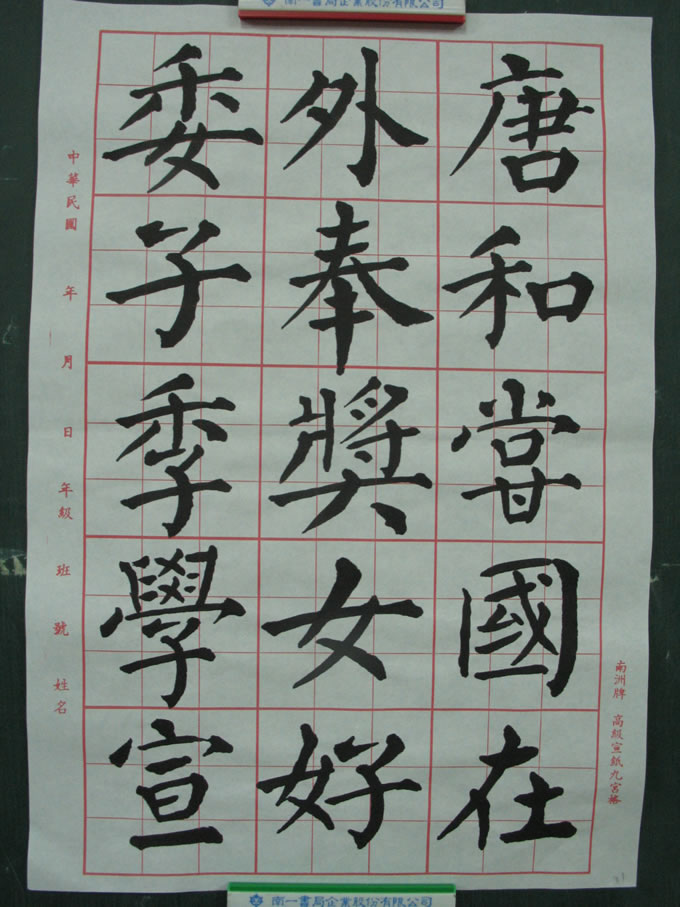 南一書局企業股份有限公司
唐和甞國在
外奉奬女好
委子季學宣
中華民國 年 月 日 年級 班 號 姓名
南洲牌 高級宣紙九宮格
南一書局企業股份有限公司